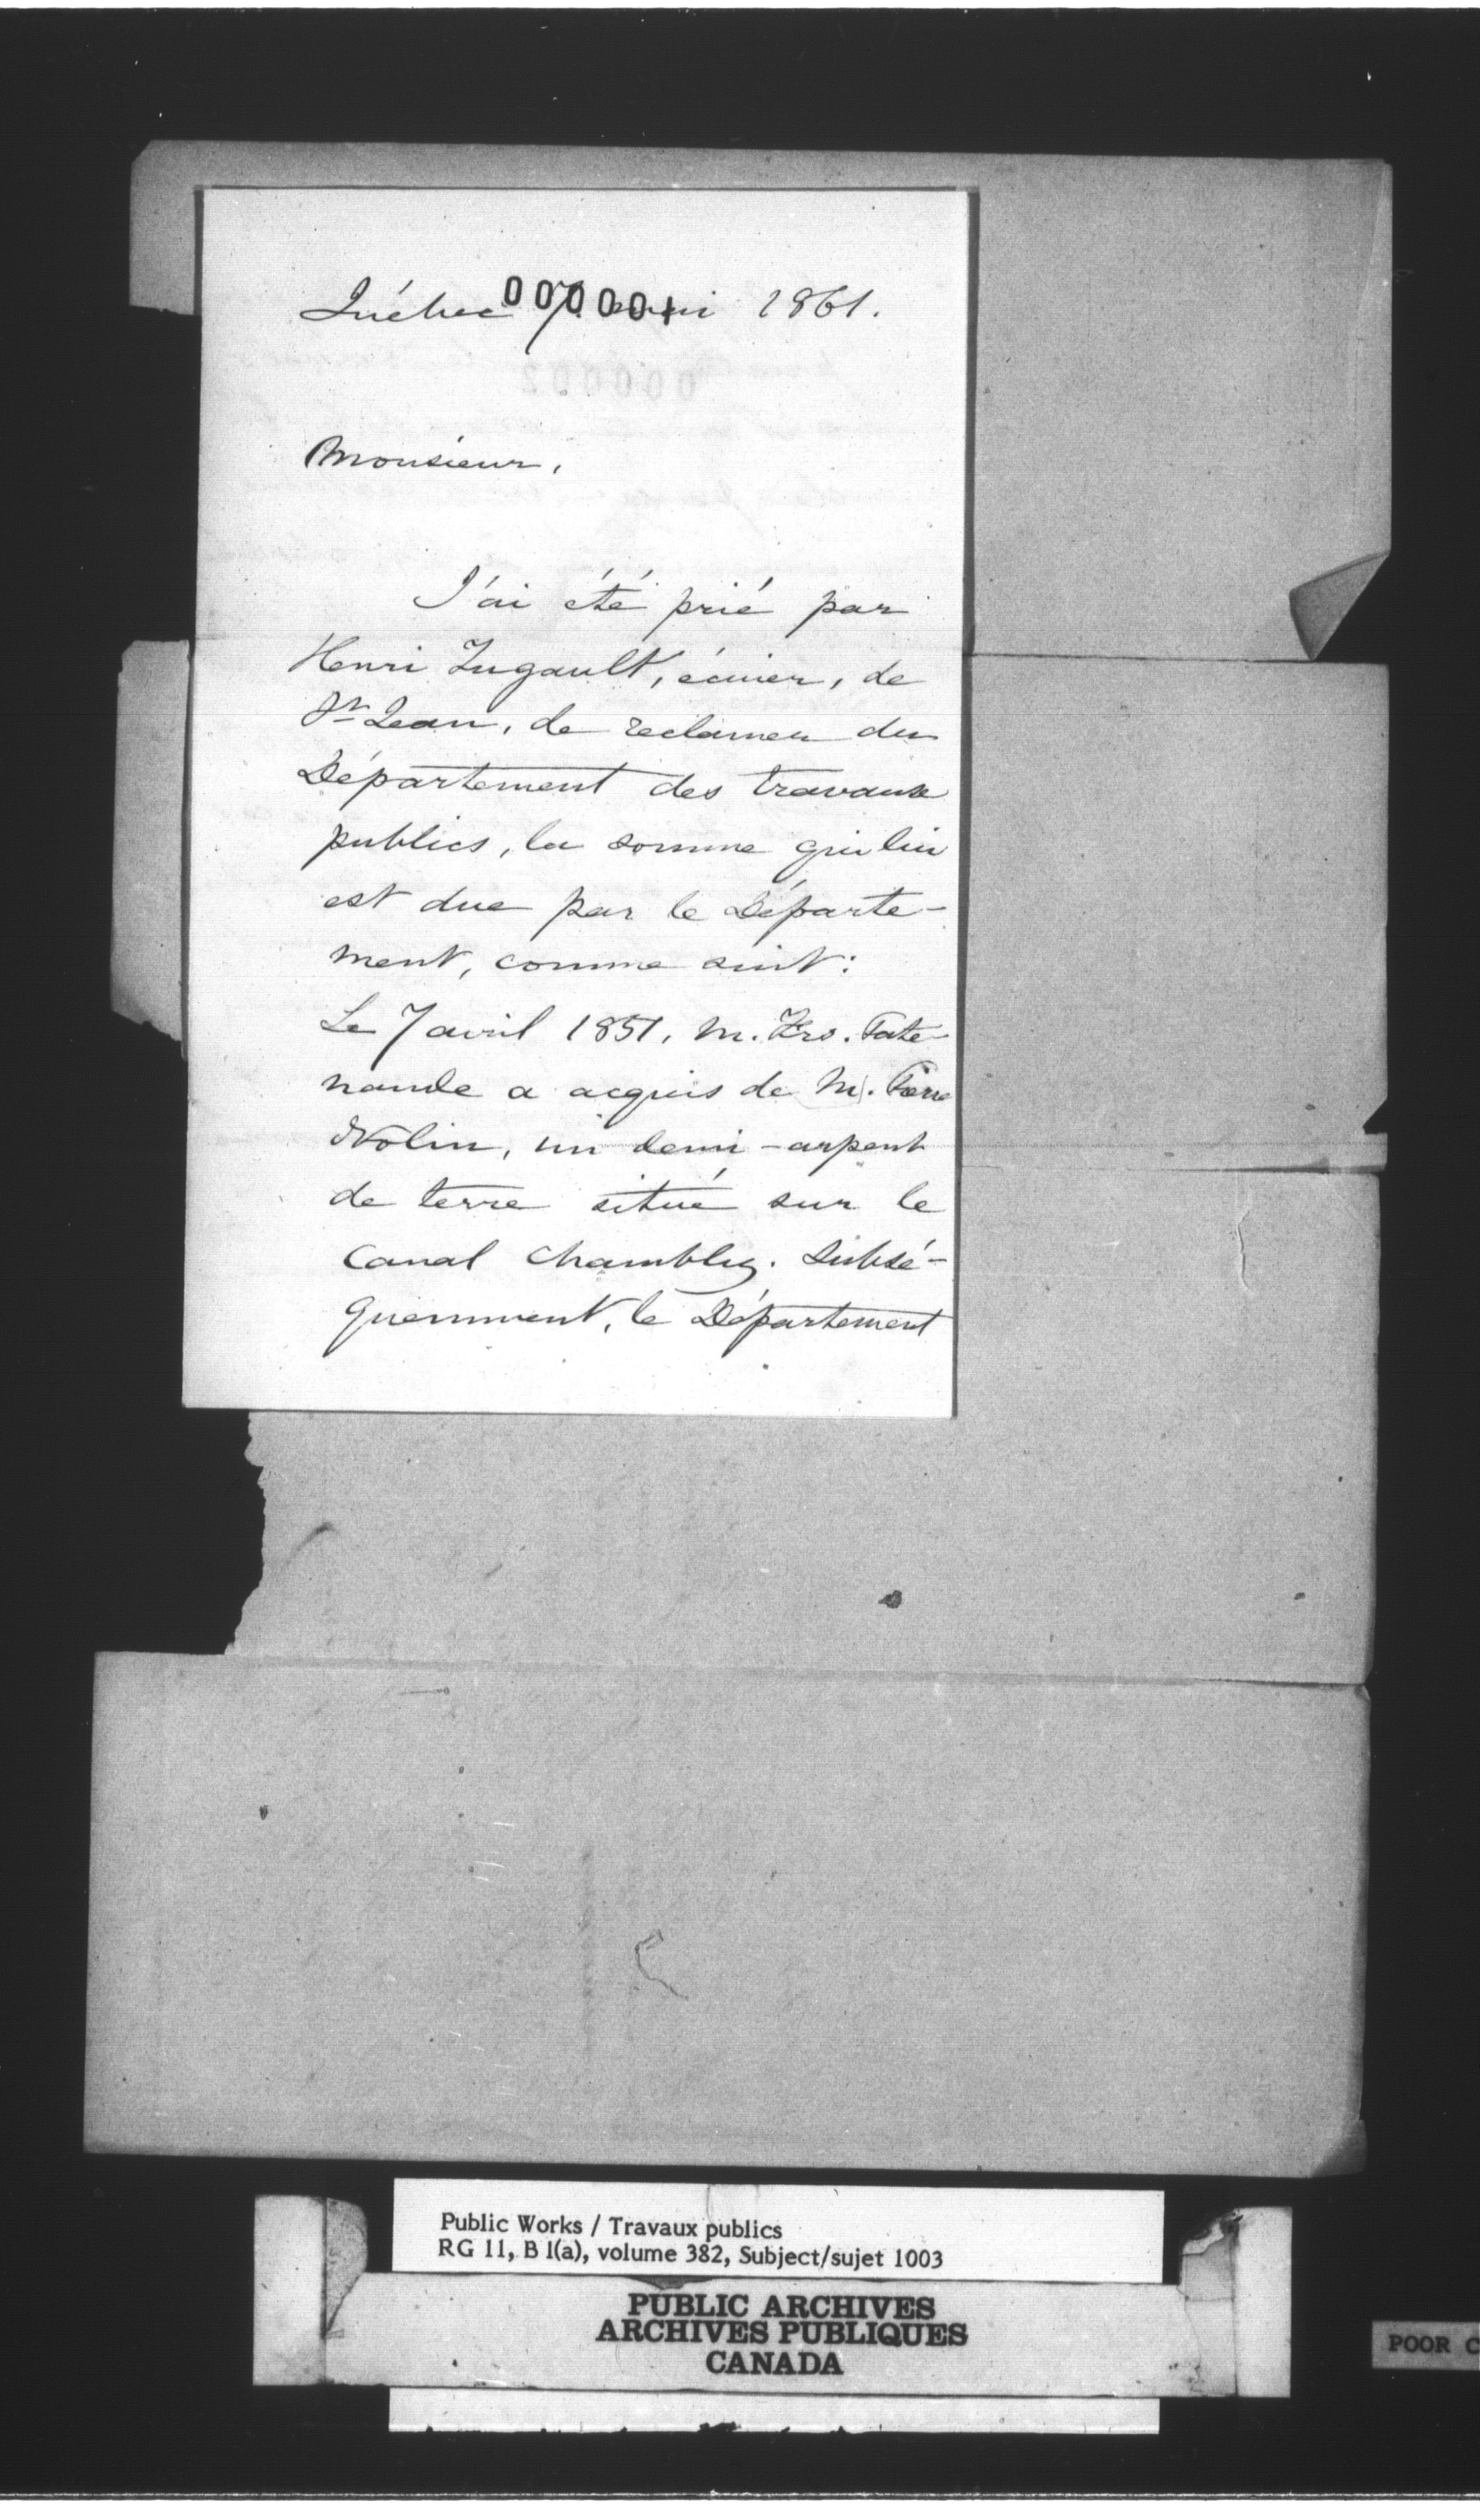 Québec 7 mai 1861.
000001
Monsieur,
J'ai été prié par
Henri Jugault, écuier, de
St Jean, de reclamer du
Département des travaux
publics, la somme qui lui
est due par le Départe-
ment, comme suit:
Le 7 avril 1851, M. Frs. Pate-
naude a acquis de M. Pierre
Nolin, un demi-arpent
de terre situé sur le
Canal Chambly. Subsé-
quemment, le Département
Public Works / Travaux publics
RG 11, B 1(a), volume 382, Subject/sujet 1003
PUBLIC ARCHIVES
ARCHIVES PUBLIQUES
CANADA
POOR C